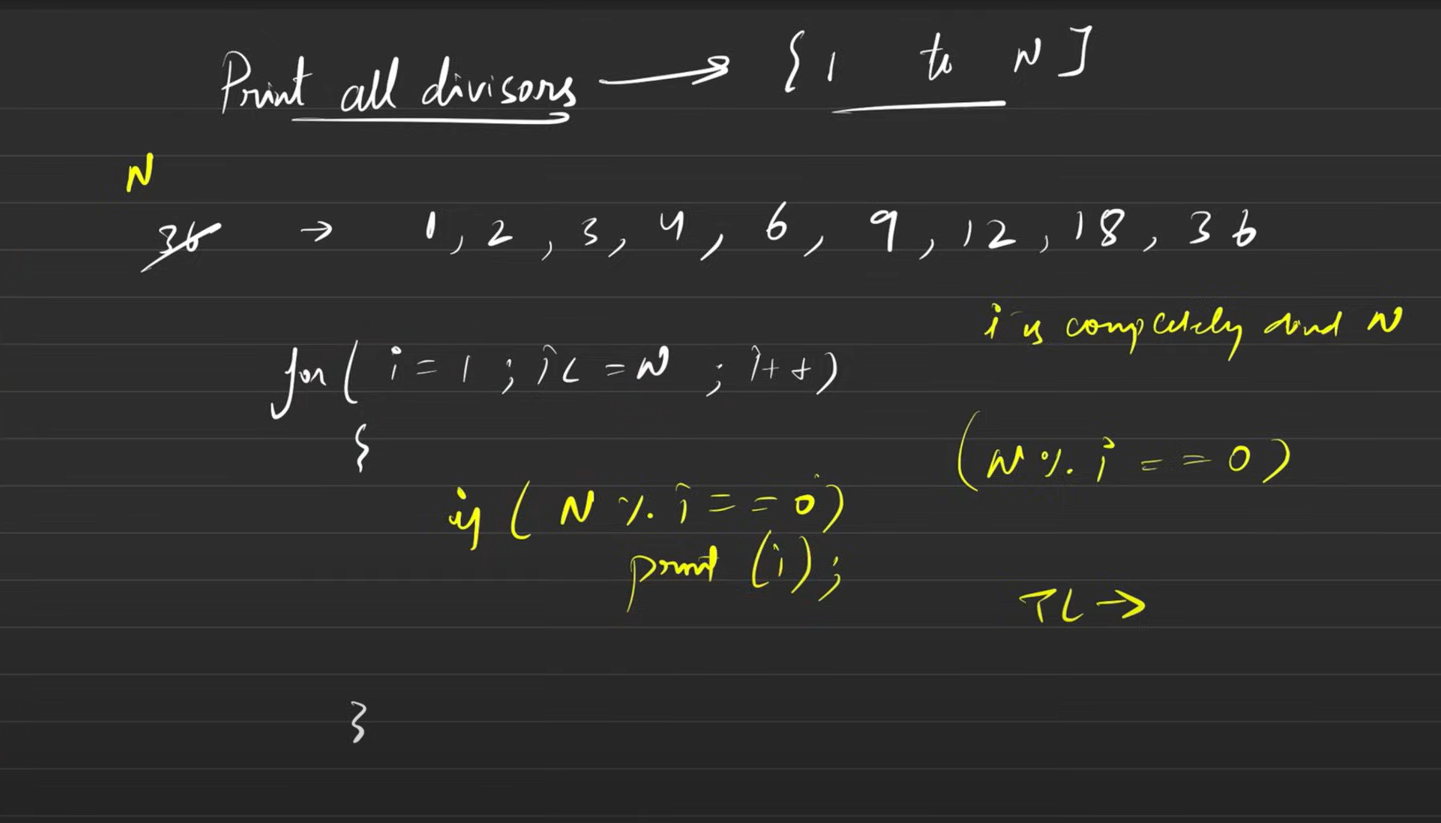 Print all divisors → {1 to N]
N
36 → 1, 2, 3, 4, 6, 9, 12, 18, 36
i is completely N
for( i = 1 ; i < = N ; i++)
{
(N % i == 0)
if ( N % i == 0)
print (i);
TC →
}